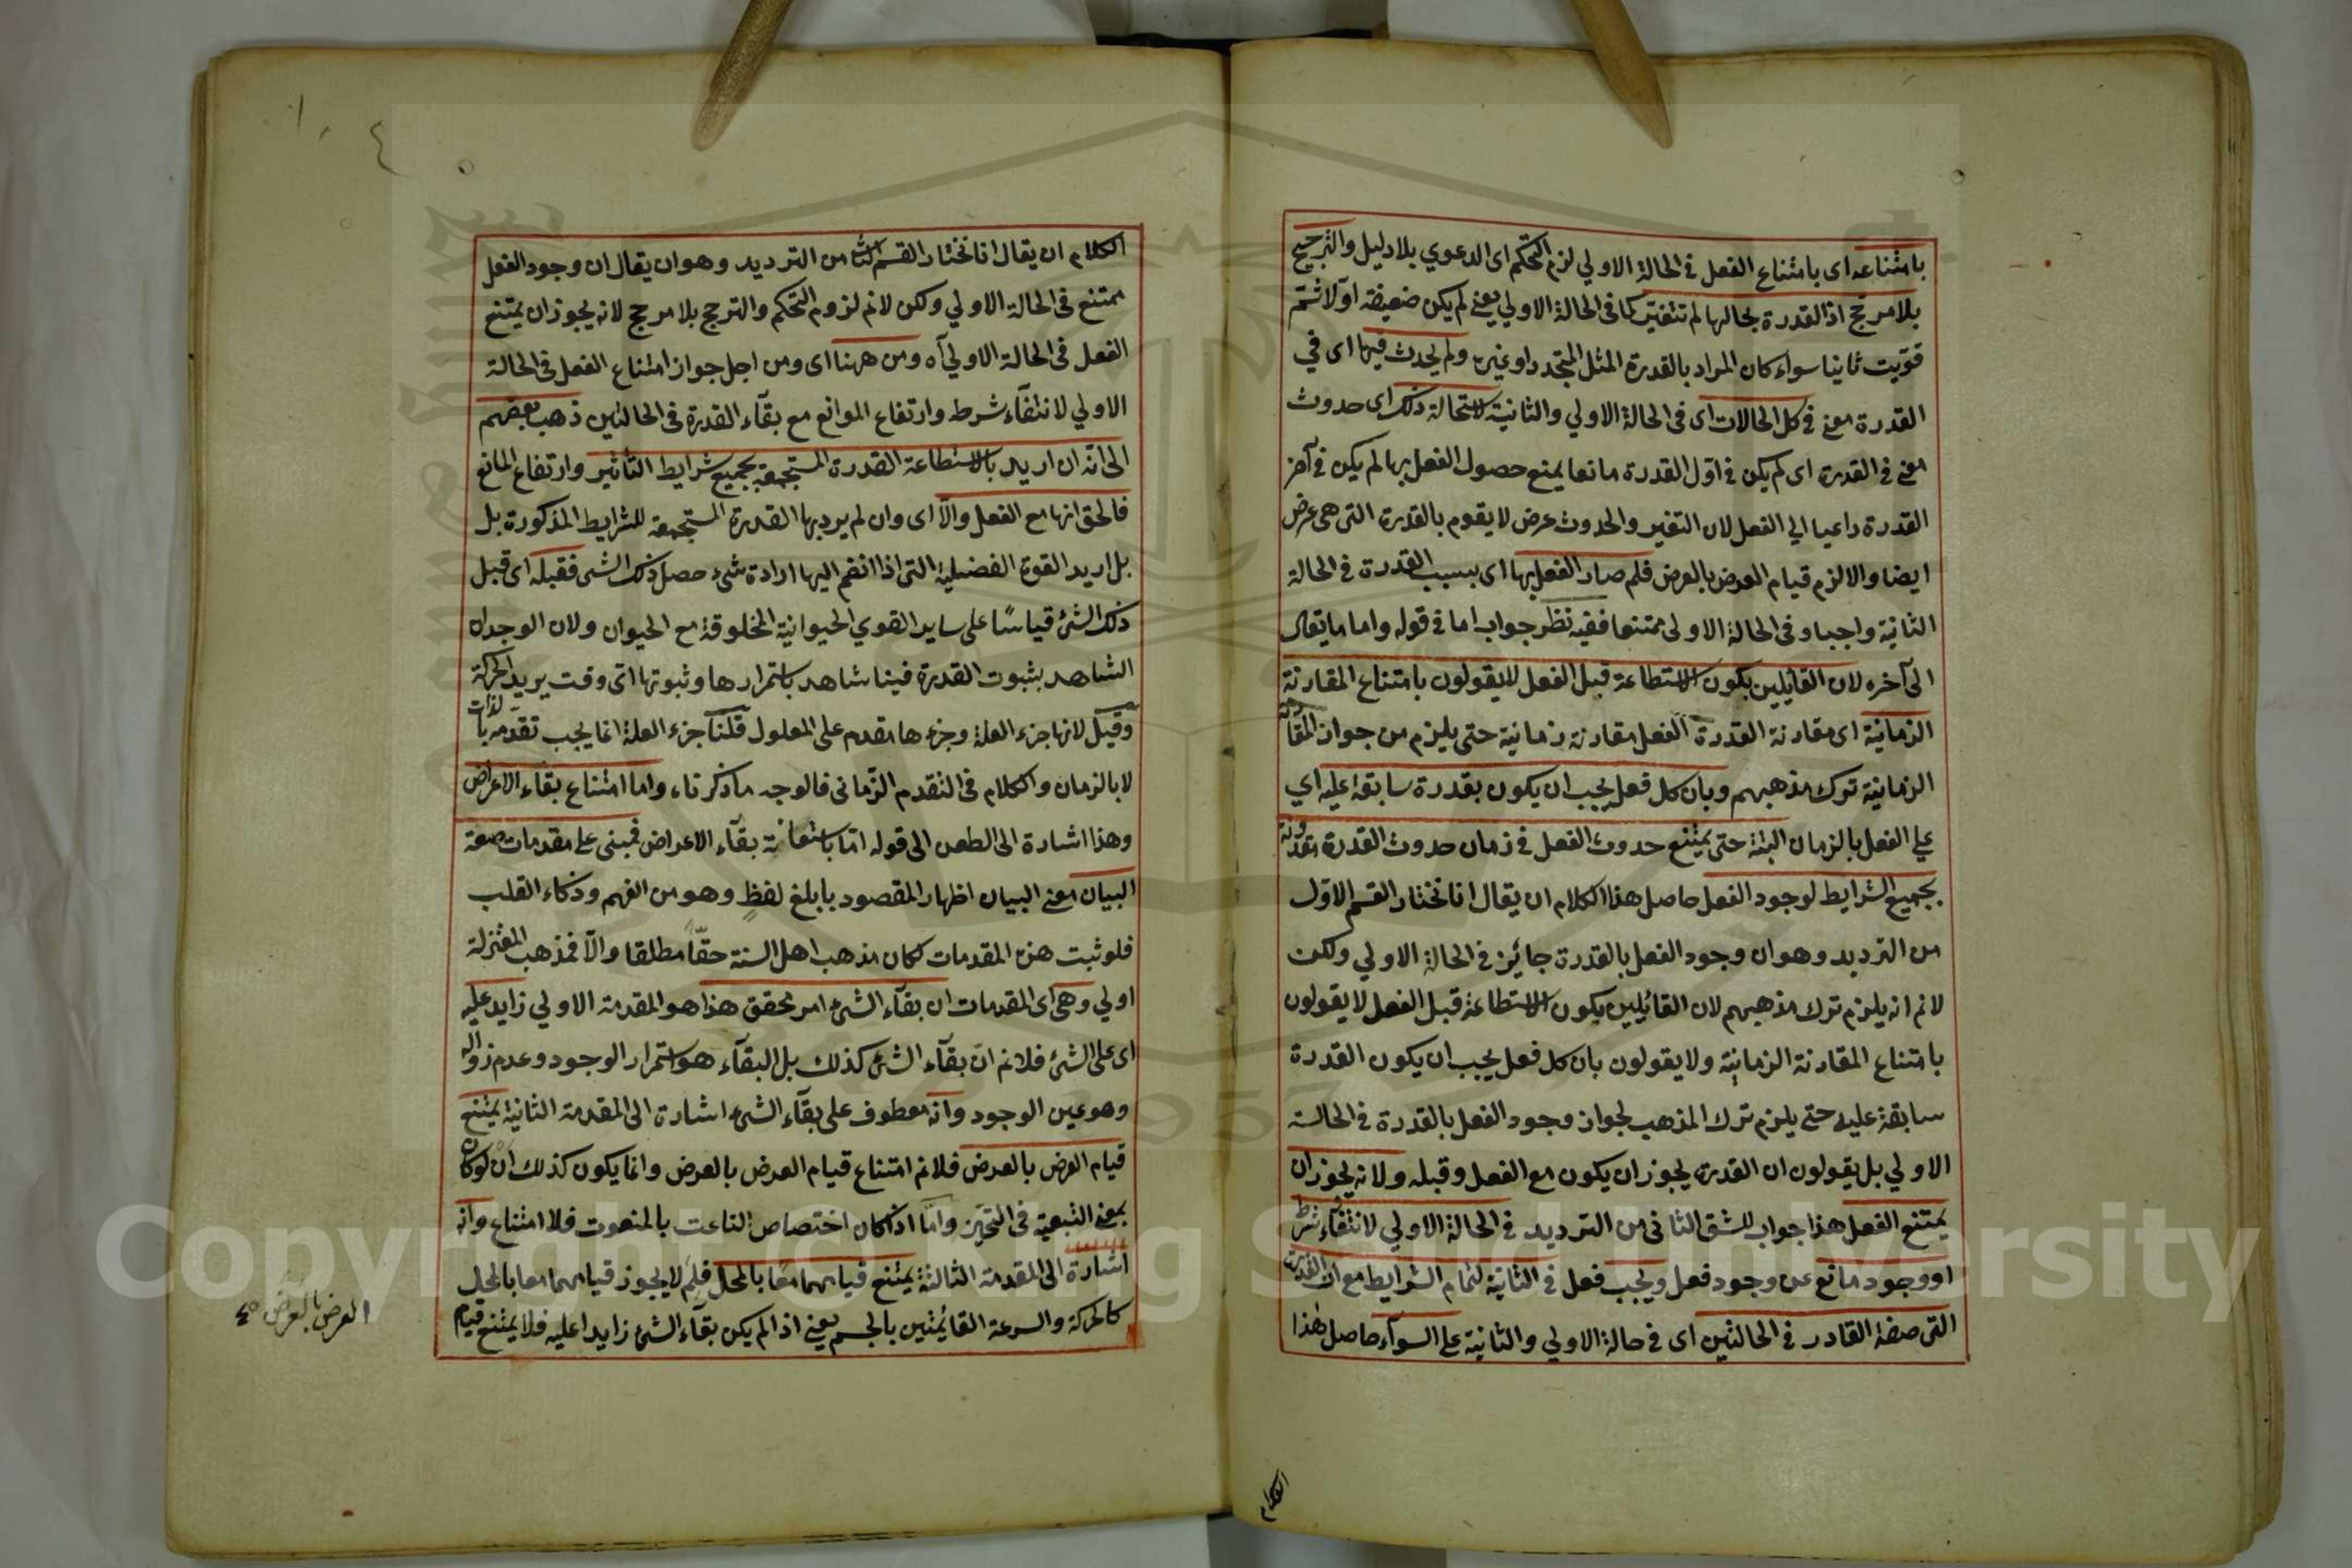 بامتناعه اى بامتناع الفعل فى الحالة الاولي لزم التحكم اى الدعوي بلا دليل والترجيح
بلا مرجح اذ القدرة بحالها لم تتغير كما فى الحالة الاولي يعنى لم يكن ضعيفة اولا ثم
قويت ثانيا سواء كان المراد بالقدرة المثل المتجدد او غيره ولم يحدث فيها اى في
القدرة معنى فى كل الحالات اى فى الحالة الاولي والثانية لاستحالة ذلك اى حدوث
معنى فى القدرة اى لم يكن فى اول القدرة مانعا يمنع حصول الفعل بها لم يكن فى آخر
القدرة داعيا الي الفعل لان التغير والحدوث عرض لا يقوم بالقدرة التى هى عرض
ايضا والا لزم قيام العرض بالعرض فلم صار الفعل بها اى بسبب القدرة فى الحالة
الثانية واجبا وفى الحالة الاولى ممتنعا ففيه نظر جواب اما فى قوله واما ما يقال
الى آخره لان القائلين بكون الاستطاعة قبل الفعل لا يقولون بامتناع المقارنة
الزمانية اى مقارنة القدرة الفعل مقارنة زمانية حتى يلزم من جواز المقارنة
الزمانية ترك مذهبهم وبان كل فعل يجب ان يكون بقدرة سابقة عليه اي
علي الفعل بالزمان البتة حتى يمتنع حدوث الفعل فى زمان حدوث القدرة مقرونة
بجميع الشرايط لوجود الفعل حاصل هذا الكلام ان يقال انا نختار القسم الاول
من الترديد وهو ان وجود الفعل بالقدرة جائز فى الحالة الاولي ولكن
لانم انه يلزم ترك مذهبهم لان القائلين بكون الاستطاعة قبل الفعل لا يقولون
بامتناع المقارنة الزمانية ولا يقولون بان كل فعل يجب ان يكون القدرة
سابقة عليه حتى يلزم ترك المذهب لجواز وجود الفعل بالقدرة فى الحالة
الاولي بل يقولون ان القدرة يجوز ان يكون مع الفعل وقبله ولانه يجوز ان
يمتنع الفعل هذا جواب للشق الثانى من الترديد فى الحالة الاولي لانتفاء شرط
او وجود مانع عن وجود فعل ويجب فعل فى الثانية لتمام الشرايط مع ان القدرة
التى صفة القادر فى الحالتين اى فى حالة الاولي والثانية على السواء حاصل هذا
الكلام
الكلام ان يقال انا نختار القسم الثا من الترديد وهو ان يقال ان وجود الفعل
ممتنع فى الحالة الاولي ولكن لانم لزوم التحكم والترجح بلا مرجح لانه يجوز ان يمتنع
الفعل فى الحالة الاولي آه ومن ههنا اى ومن اجل جواز امتناع الفعل فى الحالة
الاولي لانتفاء شرط وارتفاع الموانع مع بقاء القدرة فى الحالتين ذهب بعضهم
الى انه ان اريد بالاستطاعة القدرة المستجمعة بجميع شرايط التأثير وارتفاع المانع
فالحق انها مع الفعل والا اى وان لم يرد بها القدرة المستجمعة للشرايط المذكورة بل
بل اريد القوة الفضيلية التى اذا انضم اليها ارادة شىء حصل ذلك الشى فقبله اى قبل
ذلك الشئ قياسًا على ساير القوي الحيوانية المخلوقة مع الحيوان ولان الوجدان
الشاهد بثبوت القدرة فينا شاهد باستمرارها وثبوتها اى وقت يريد الحركة
وقيل لانها جزء العلة وجزءها مقدم على المعلول قلنا جزء العلة انما يجب تقدمه بالذات
لا بالزمان والكلام فى التقدم الزّمانى فالوجه ما ذكرناه واما امتناع بقاء الاعراض
وهذا اشارة الى الطعن الى قوله اما باستعانة بقاء الاعراض فمبنى على مقدمات صعبة
البيان معنى البيان اظهار المقصود بابلغ لفظٍ وهو من الفهم وذكاء القلب
فلو ثبت هذه المقدمات لكان مذهب اهل السنة حقًا مطلقا والا فمذهب المعتزلة
اولي وهى اى المقدمات ان بقاء الشئ امر محقق هذا هو المقدمة الاولي زايد عليه
اى على الشئ فلانم ان بقاء الشئ كذلك بل البقاء هو استمرار الوجود وعدم زواله
وهو عين الوجود وانه معطوف على بقاء الشئ اشارة الى المقدمة الثانية يمتنع
قيام العرض بالعرض فلانم امتناع قيام العرض بالعرض وانما يكون كذلك ان لو كان
بمعنى التبعية فى التحيز واما اذا كان اختصاص الناعت بالمنعوت فلا امتناع وانه
اشارة الى المقدمة الثالثة يمتنع قيامهما معًا بالمحل فلم لا يجوز قيامهما معا بالمحل
كالحركة والسرعة القائمتين بالجسم يعنى اذا لم يكن بقاء الشئ زايدا عليه فلا يمتنع قيام
العرض بالعرض